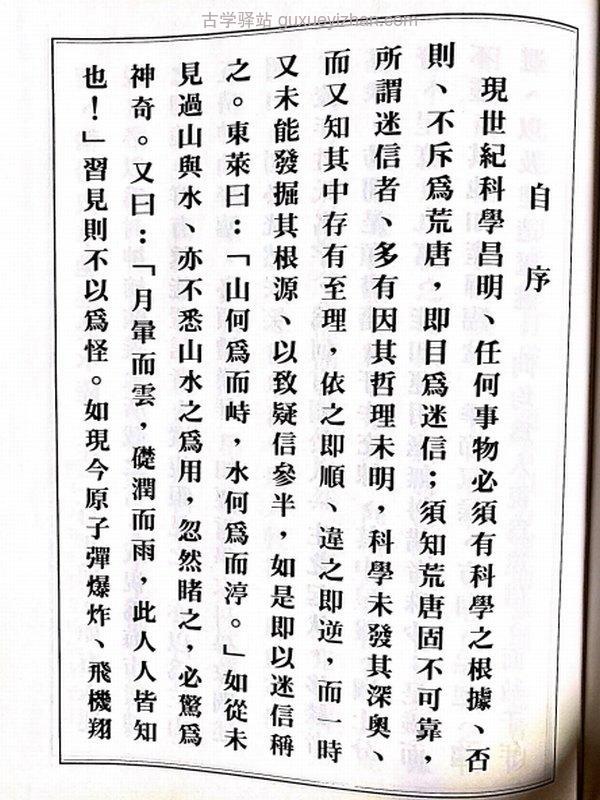 古学驿站 guxueyizhan.com
自序
現世紀科學昌明、任何事物必須有科學之根據、否
則、不斥爲荒唐，即目爲迷信；須知荒唐固不可靠，
所謂迷信者、多有因其哲理未明，科學未發其深奥、
而又知其中存有至理，依之即順、違之即逆，而一時
又未能發掘其根源、以致疑信參半，如是即以迷信稱
之。東萊曰：「山何爲而峙，水何爲而渟。」如從未
見過山與水、亦不悉山水之爲用，忽然睹之，必驚爲
神奇。又曰：「月暈而雲，礎潤而雨，此人人皆知
也！」習見則不以爲怪。如現今原子彈爆炸、飛機翔